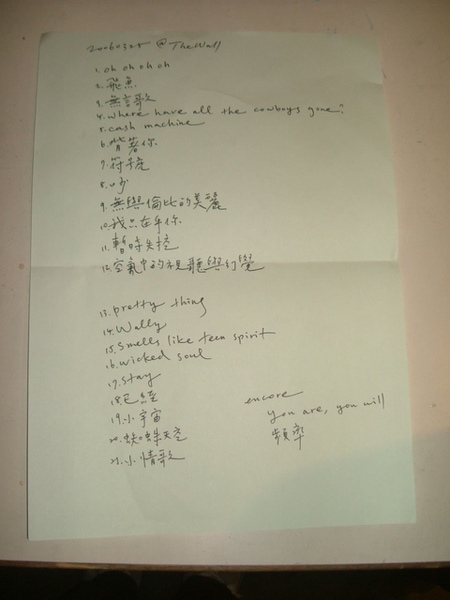 20060325 @ The Wall
1. oh oh oh oh
2. 飛魚
3. 無言歌
4. where have all the cowboys gone?
5. cash machine
6. 背著你
7. 符子虎
8. 吵
9. 無與倫比的美麗
10. 我只在乎你
11. 暫時失控
12. 空氣中的視聽與幻覺
13. pretty thing
14. Wally
15. Smells like teen spirit
16. wicked soul
17. Stay
18. 已經
19. 小宇宙
20. 蜈蚣天空
21. 小情歌
encore
you are, you will
頻率